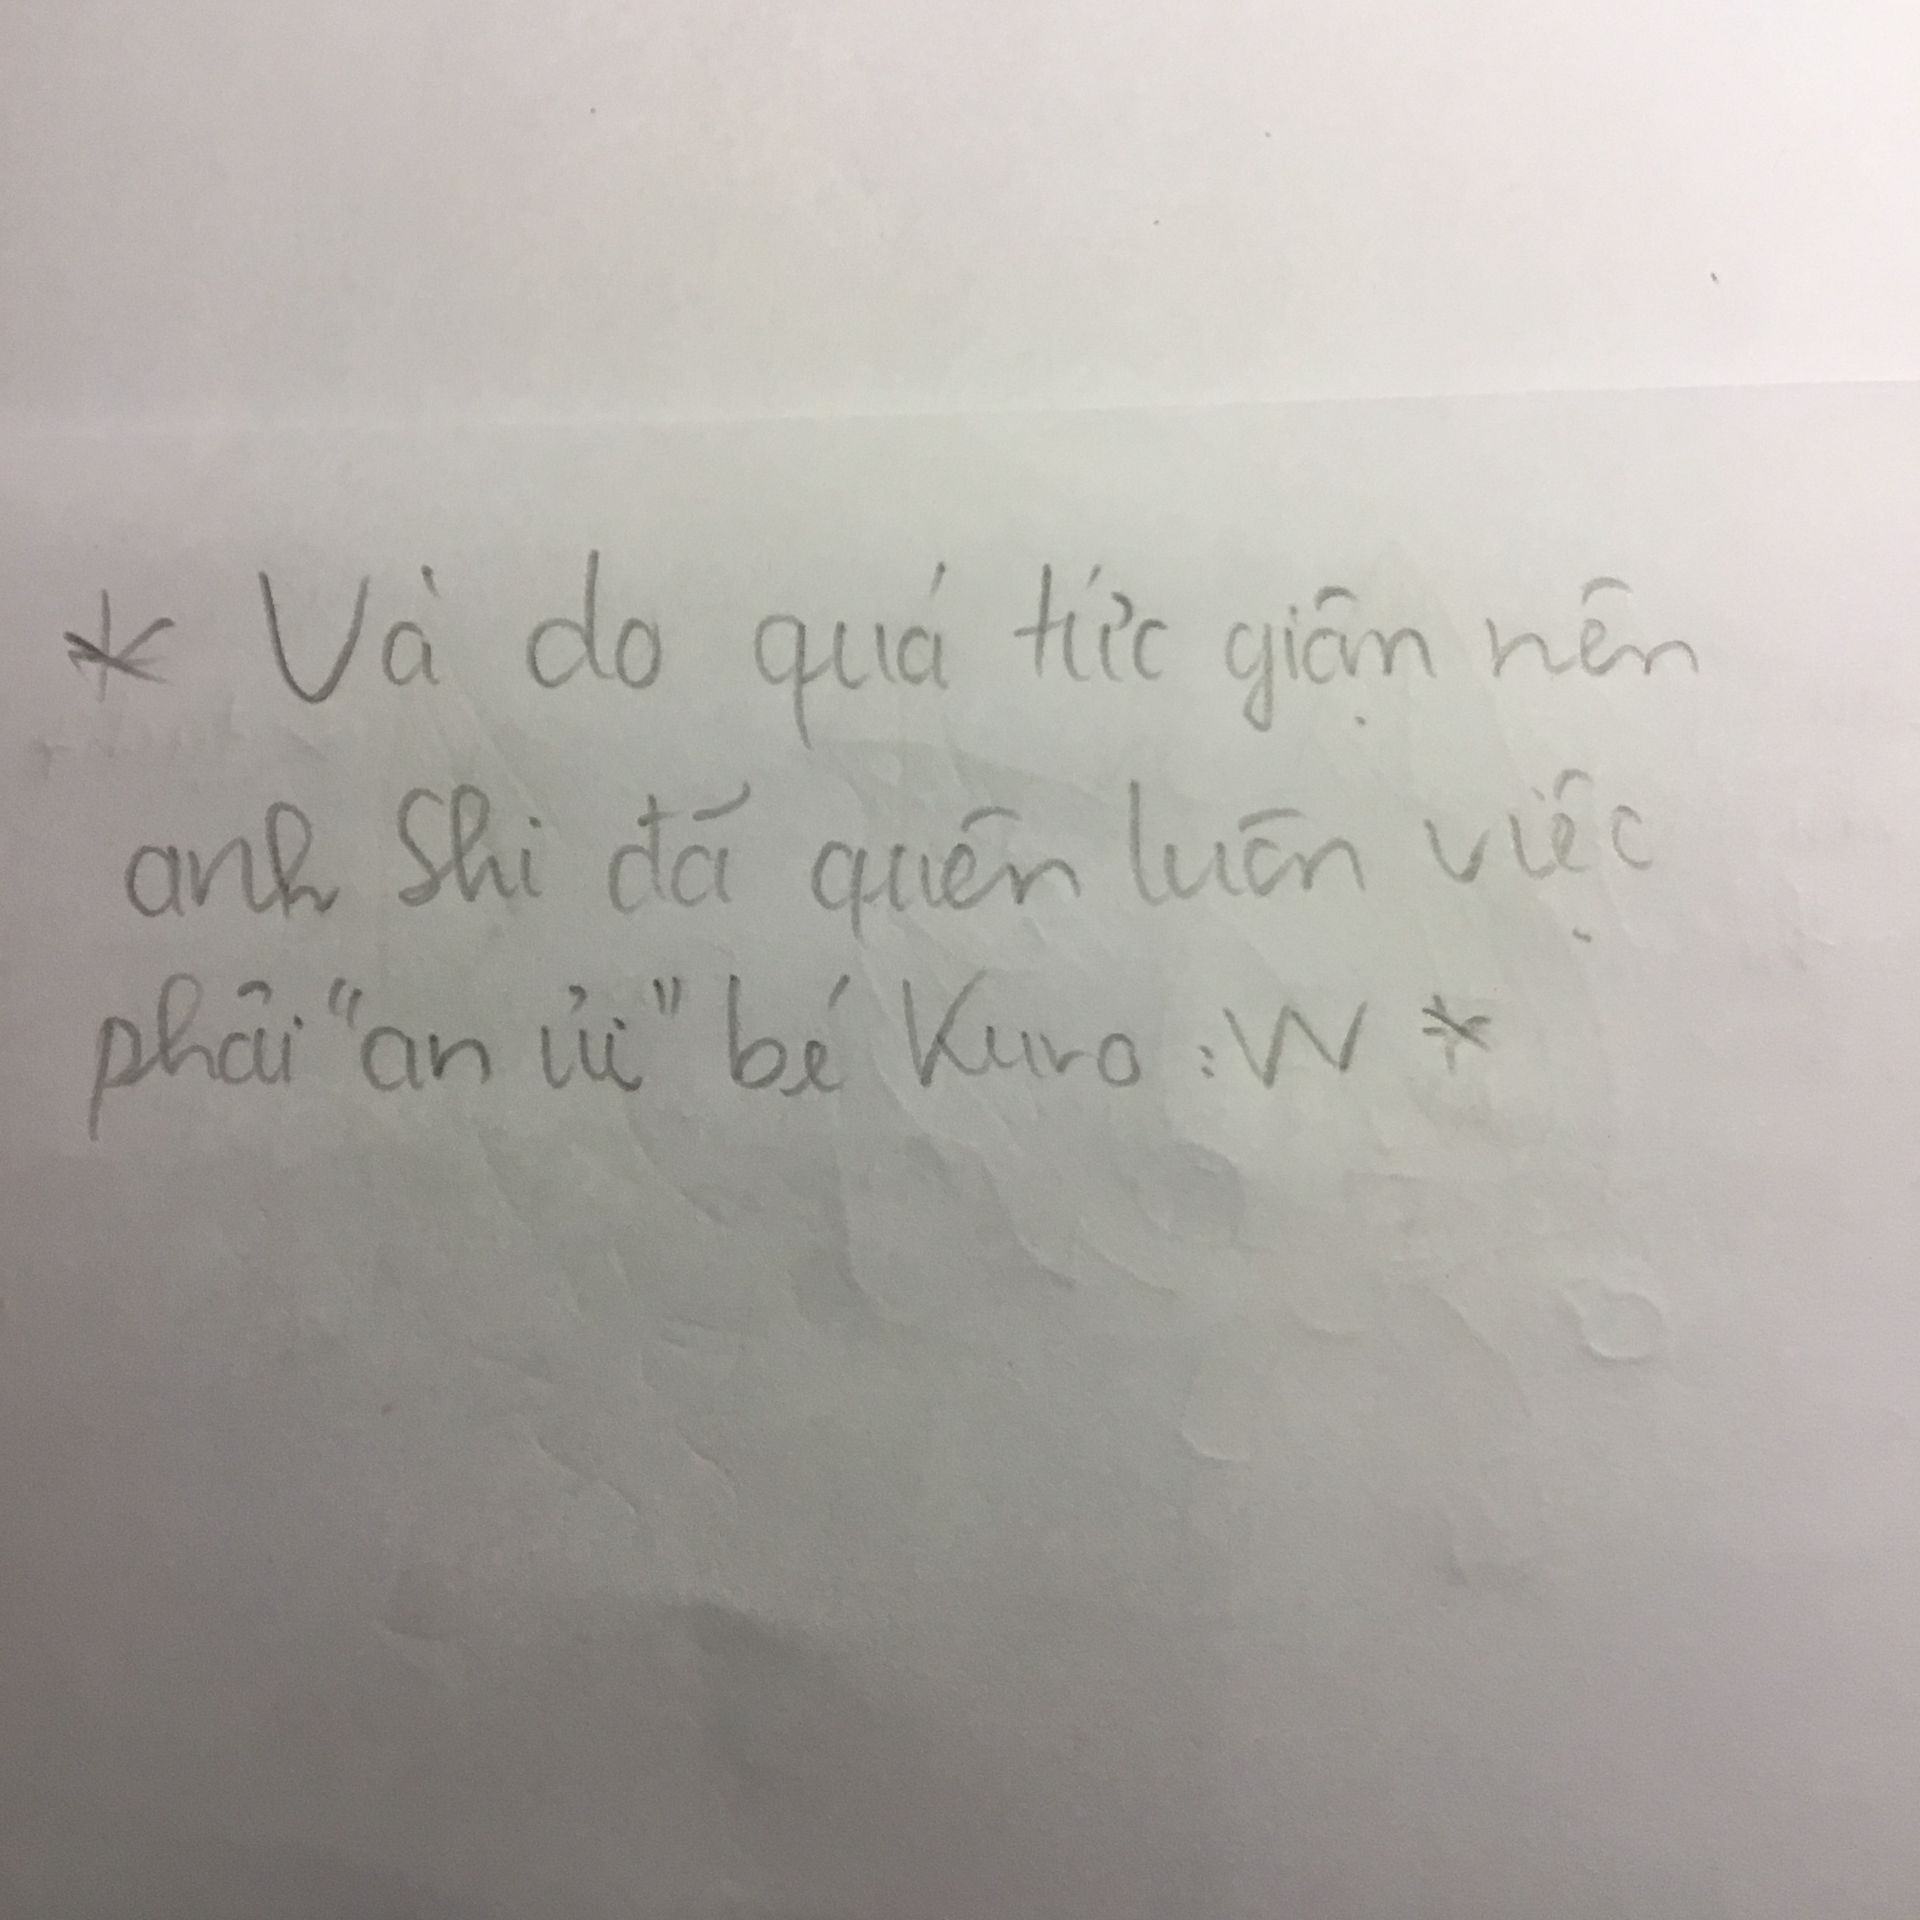 * Và do quá tức giận nên
anh Shi đã quên luôn việc
phải "an ủi" bé Kuro :W *